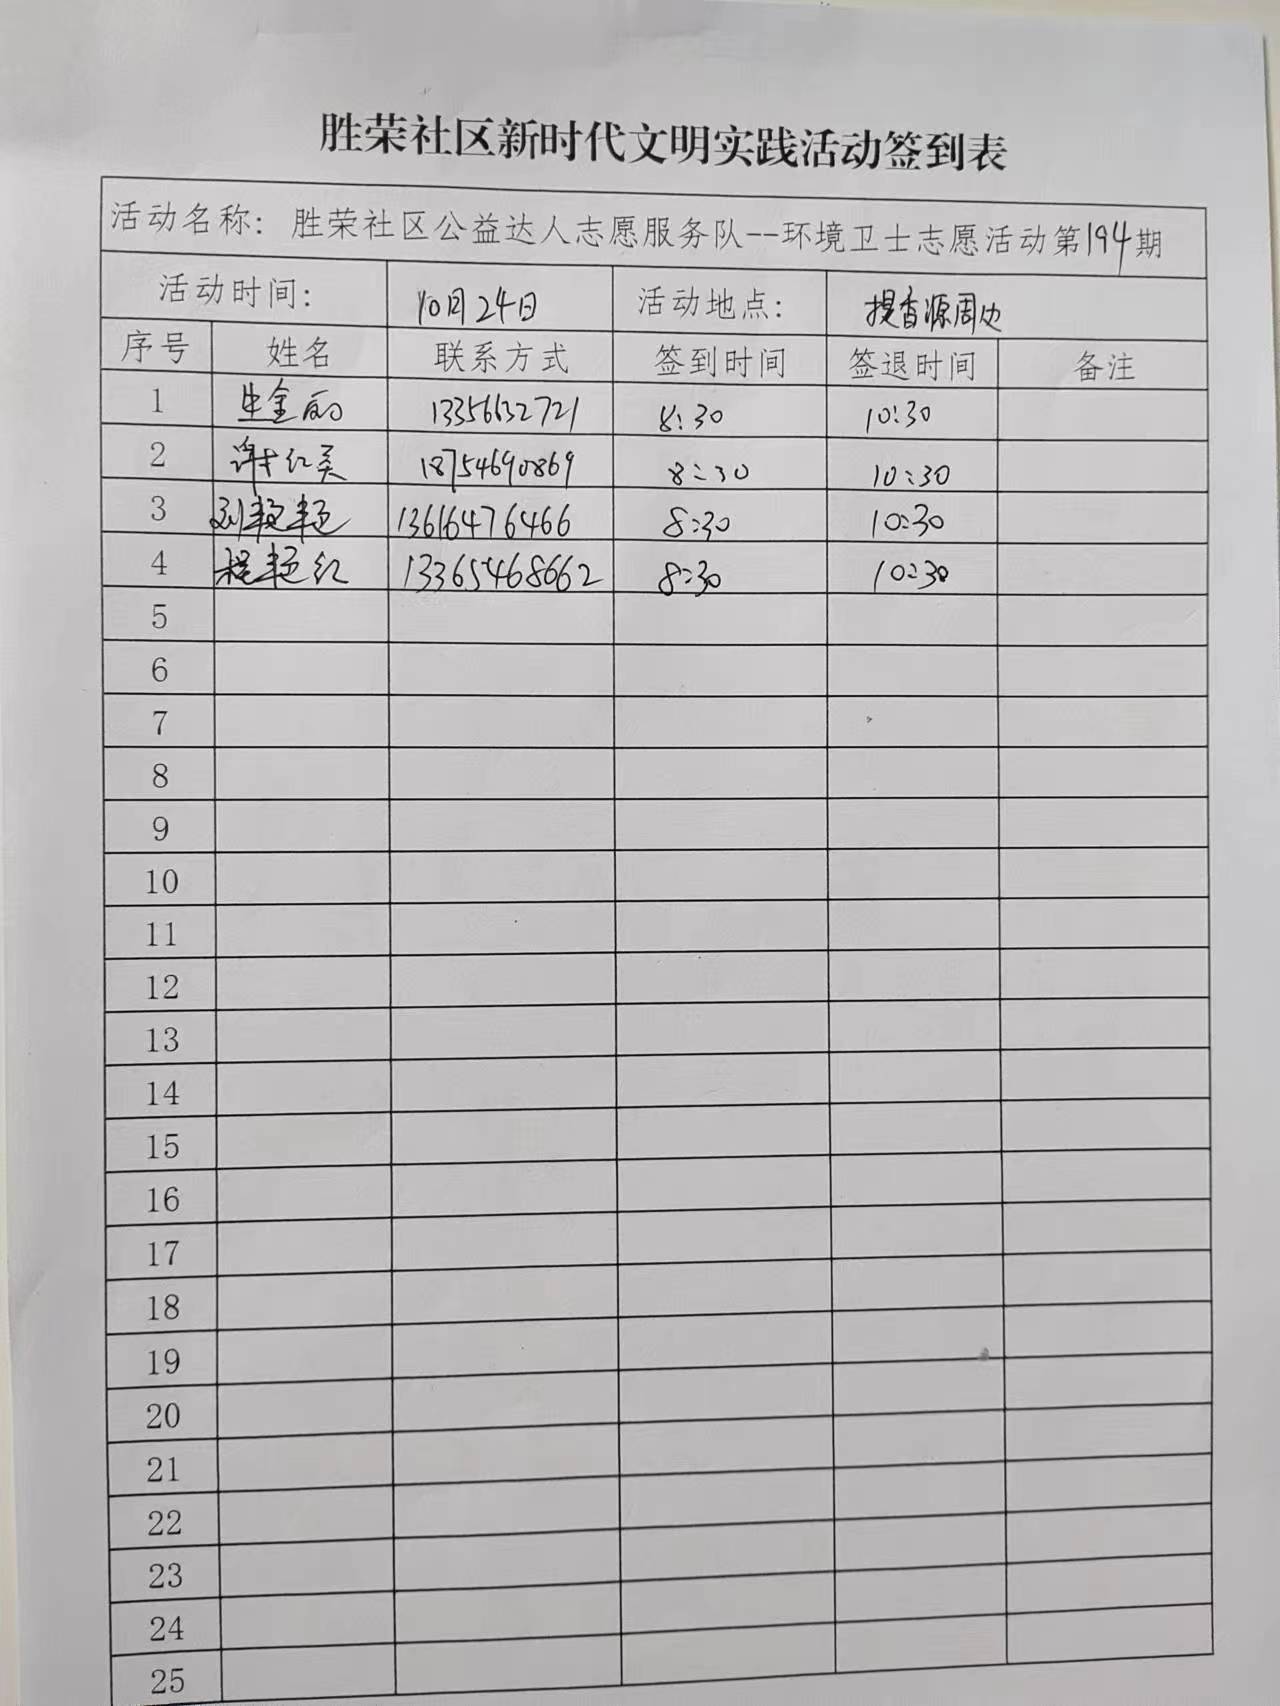 胜荣社区新时代文明实践活动签到表
活动名称: 胜荣社区公益达人志愿服务队--环境卫士志愿活动第194期
活动时间: 10月24日 活动地点: 提香源周边
序号 姓名 联系方式 签到时间 签退时间 备注
1 生金丽 13356632721 8:30 10:30
2 谢红英 18754690869 8:30 10:30
3 刘艳艳 13616476466 8:30 10:30
4 程艳红 13365468662 8:30 10:30
5
6
7
8
9
10
11
12
13
14
15
16
17
18
19
20
21
22
23
24
25